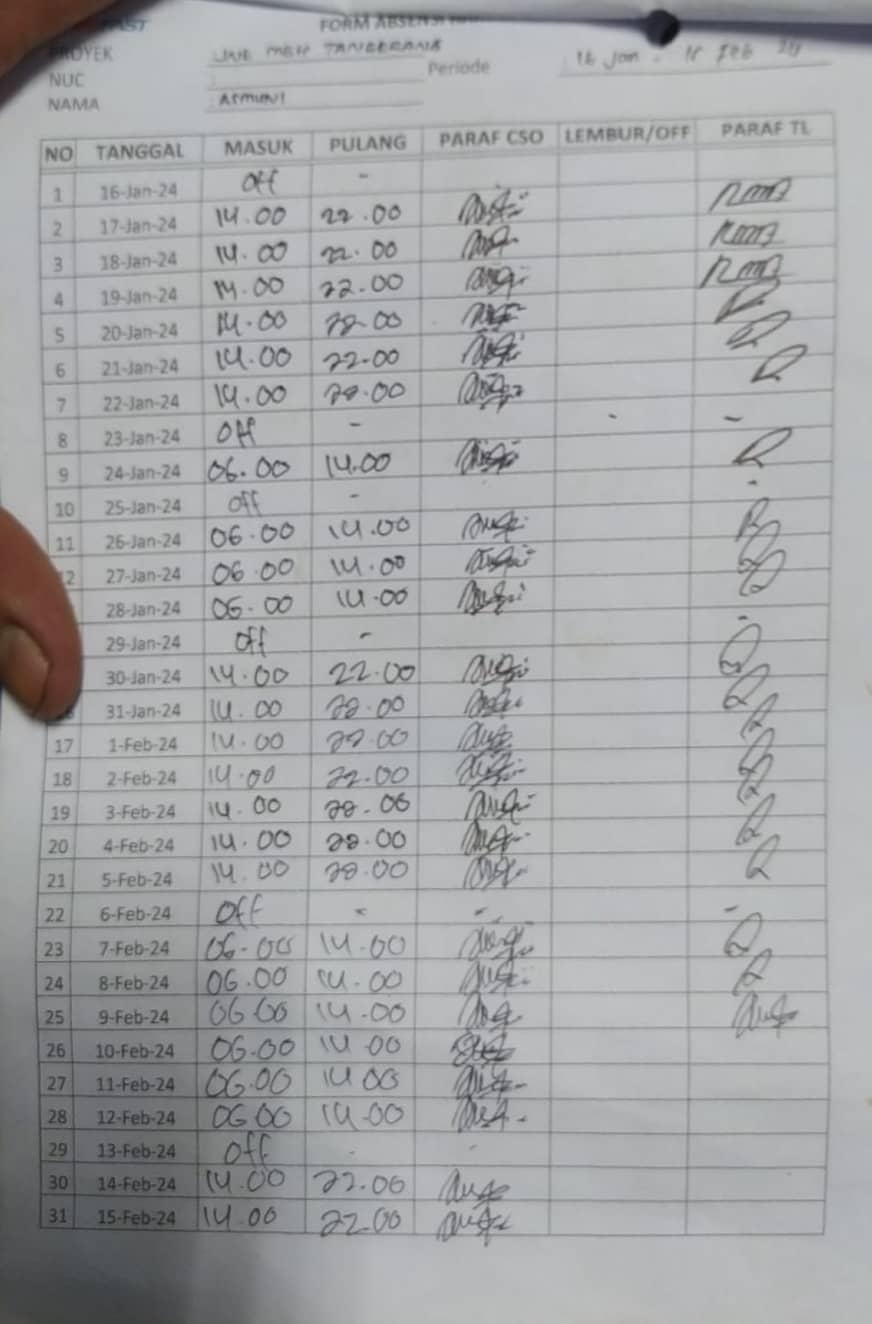 FAST FORM ABSENSI
PROYEK TANGERANG Periode 16 Jan - 15 Feb 24
NUC
NAMA ASMUNI
NO TANGGAL MASUK PULANG PARAF CSO LEMBUR/OFF PARAF TL
1 16-Jan-24 Off -
2 17-Jan-24 14.00 22.00
3 18-Jan-24 14.00 22.00
4 19-Jan-24 14.00 22.00
5 20-Jan-24 14.00 22.00
6 21-Jan-24 14.00 22.00
7 22-Jan-24 14.00 22.00
8 23-Jan-24 Off - - -
9 24-Jan-24 06.00 14.00
10 25-Jan-24 Off - -
11 26-Jan-24 06.00 14.00
12 27-Jan-24 06.00 14.00
28-Jan-24 06.00 14.00
29-Jan-24 Off - -
30-Jan-24 14.00 22.00
31-Jan-24 14.00 22.00
17 1-Feb-24 14.00 22.00
18 2-Feb-24 14.00 22.00
19 3-Feb-24 14.00 22.00
20 4-Feb-24 14.00 22.00
21 5-Feb-24 14.00 22.00
22 6-Feb-24 Off - - -
23 7-Feb-24 06.00 14.00
24 8-Feb-24 06.00 14.00
25 9-Feb-24 06.00 14.00
26 10-Feb-24 06.00 14.00
27 11-Feb-24 06.00 14.00
28 12-Feb-24 06.00 14.00
29 13-Feb-24 Off - -
30 14-Feb-24 14.00 22.00
31 15-Feb-24 14.00 22.00